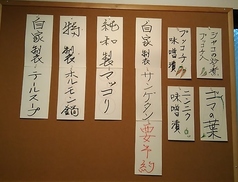 ジャコの炒煮
ゴマの葉
味噌漬
ニンニク
味噌漬
自家製サンゲタン要予約
純和製マッコリ
特製ホルモン鍋
自家製テールスープ